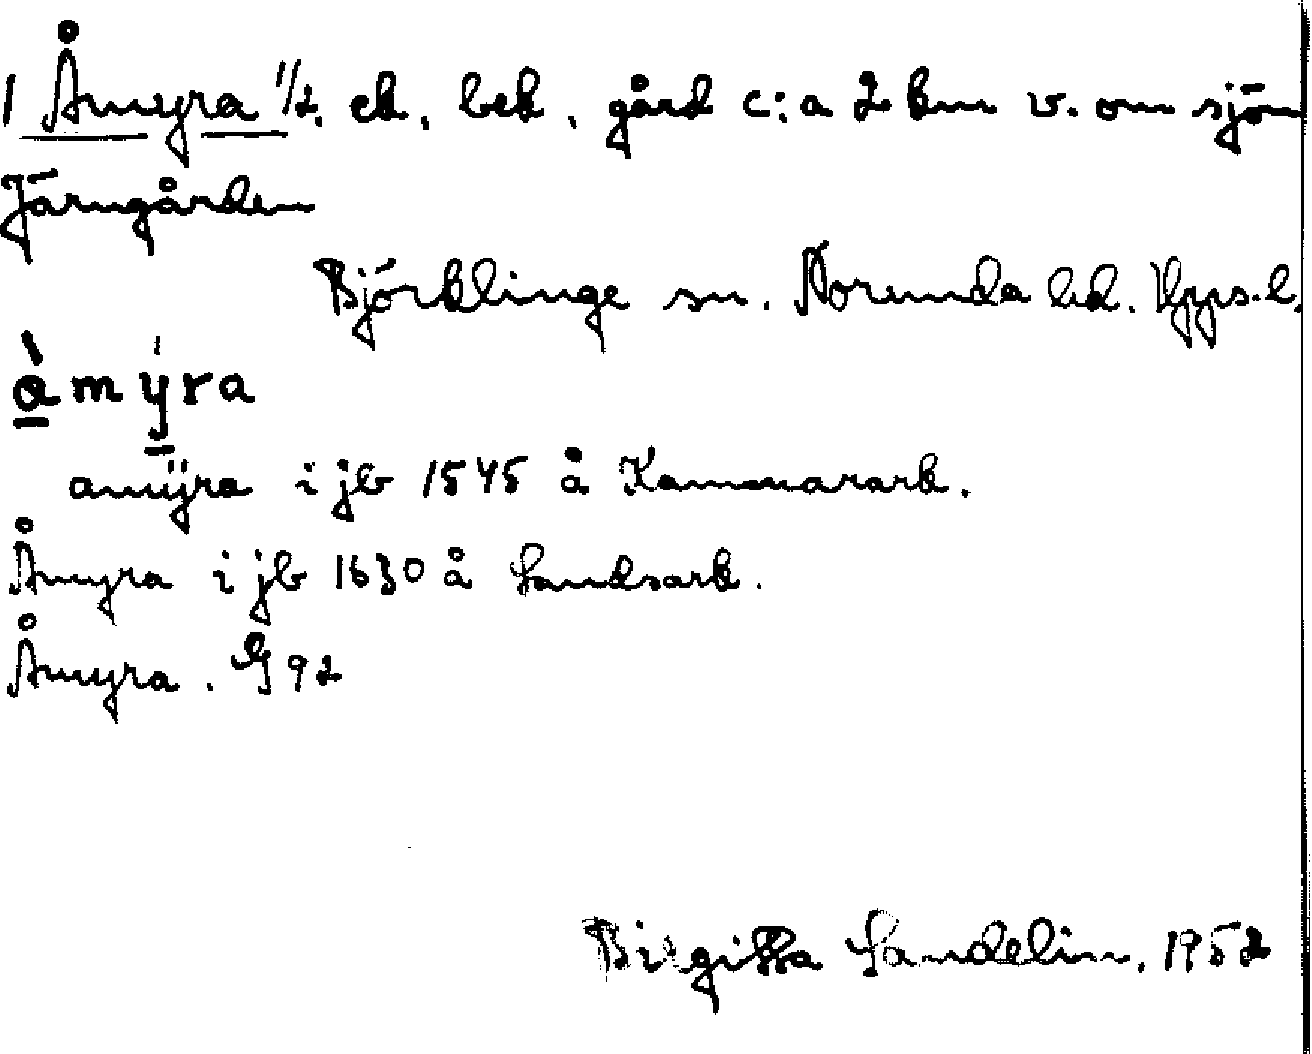 1 Åmyra 1/2. ek. bek. gård c:a 2 km v. om sjön
Järngården
Björklinge sn. Norunda hd. Upps.l.
åmyra
amÿra i jb 1545 å Kammarark.
Åmyra i jb 1630 å Landsark.
Åmyra. G 92
Birgitta Sandelin. 1952